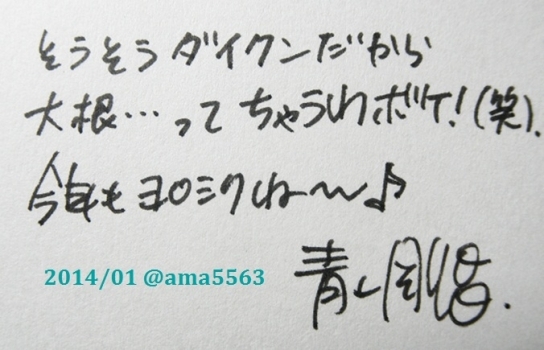 そうそうダイクンだから
大根…ってちゃうわボケ!(笑).
今年もヨロミクね〜♪
青山剛昌.
2014/01 @ama5563